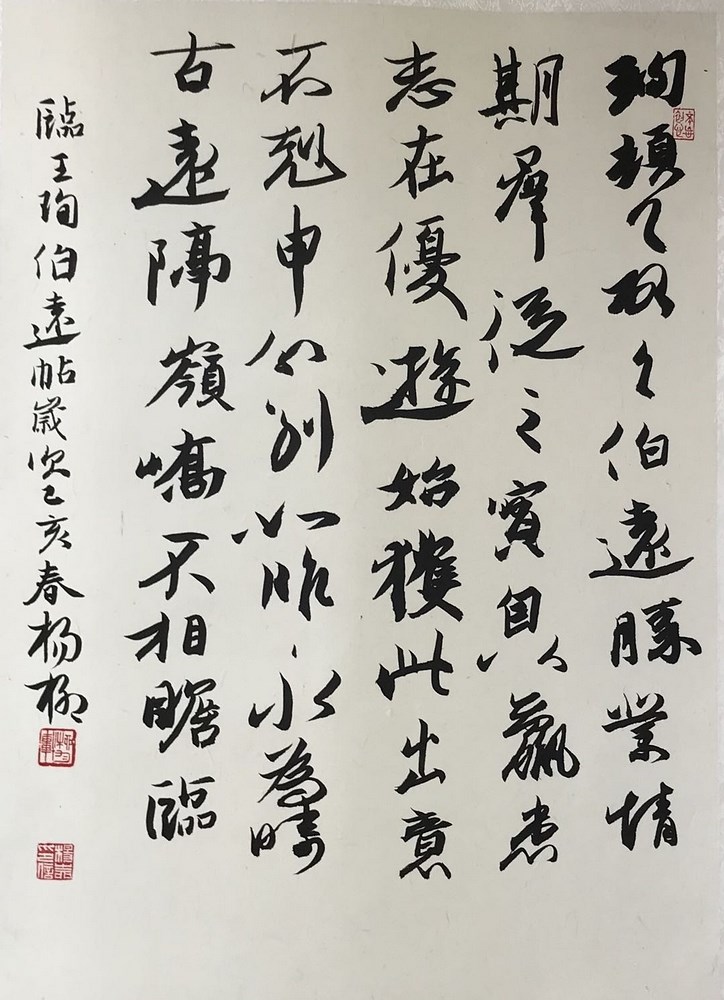 珣頓首頓首伯遠勝業情
期群從之寶自以羸患
志在優遊始獲此出意
不剋申分別如昨永為疇
古遠隔嶺嶠不相瞻臨
臨王珣伯遠帖歲次己亥春杨柳